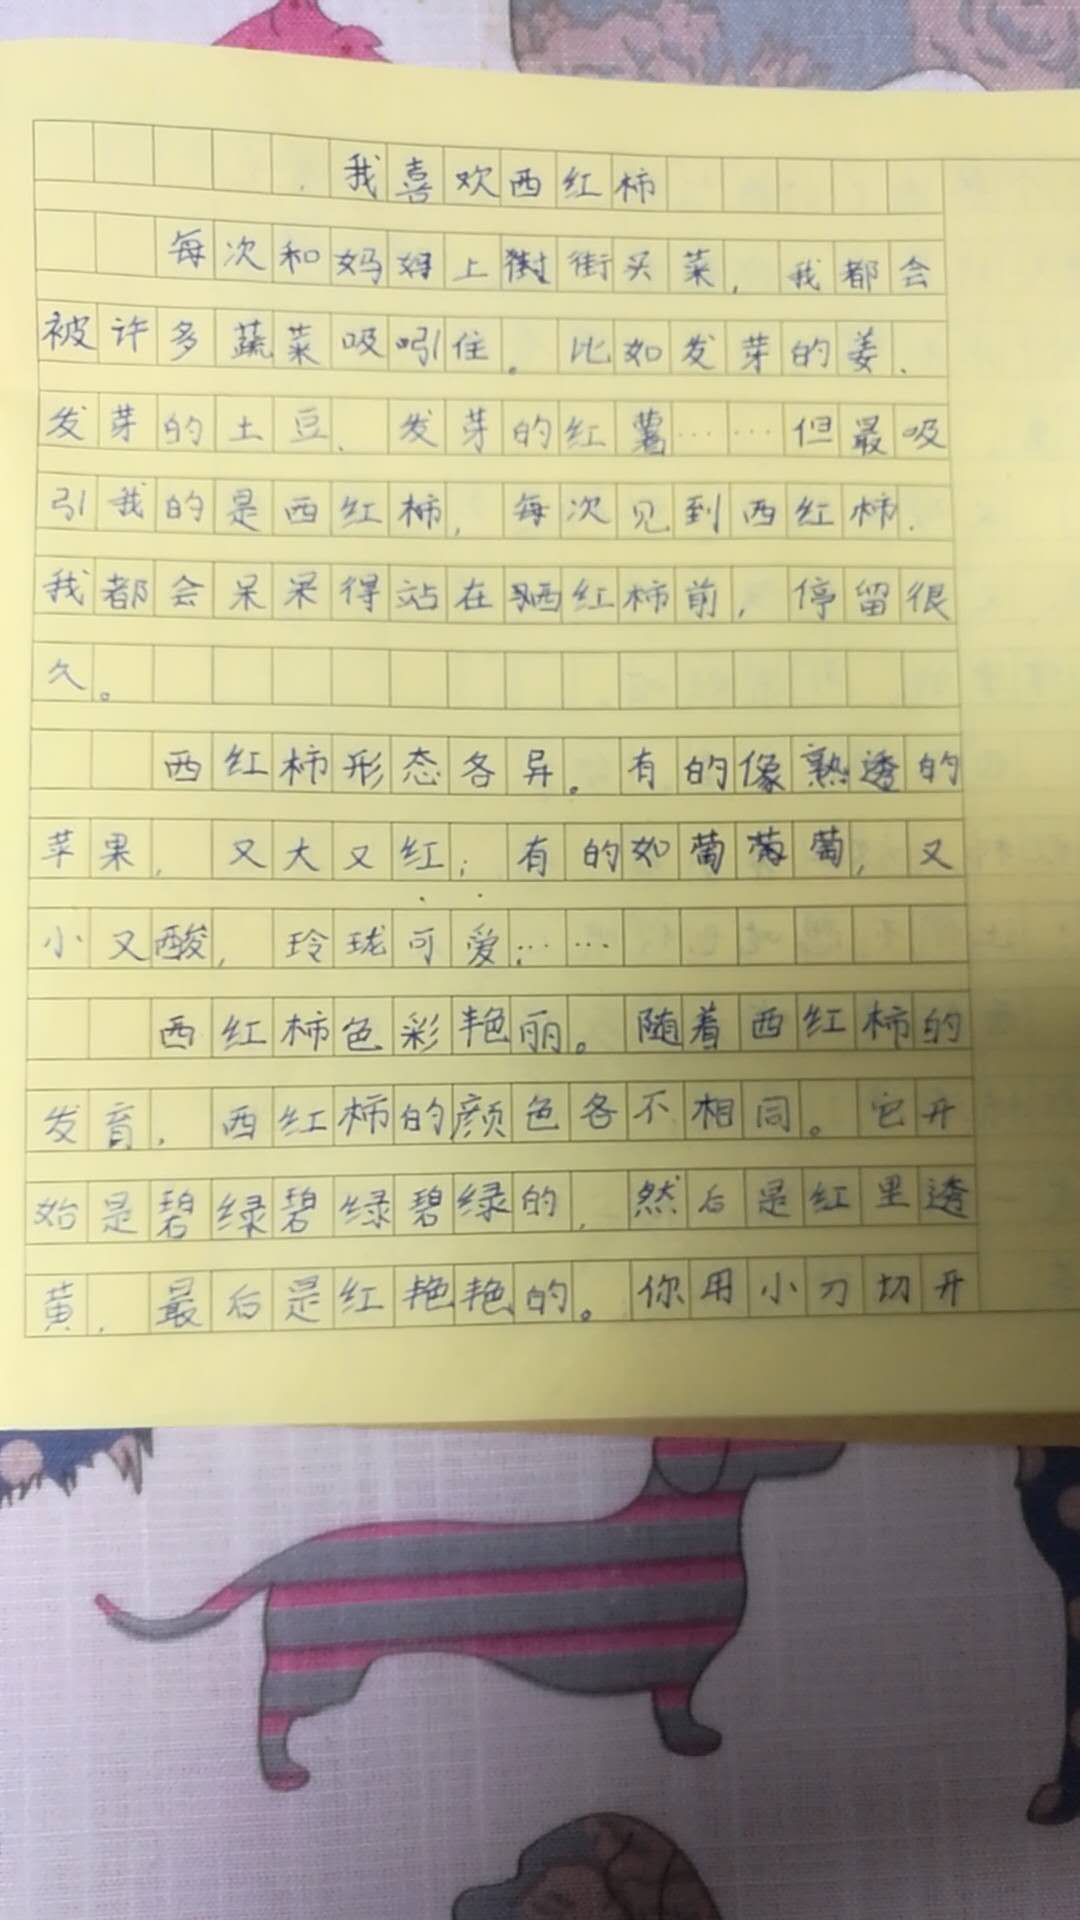 我喜欢西红柿
每次和妈妈上街买菜，我都会
被许多蔬菜吸引住。比如发芽的姜、
发芽的土豆、发芽的红薯……但最吸
引我的是西红柿，每次见到西红柿，
我都会呆呆得站在西红柿前，停留很
久。
西红柿形态各异。有的像熟透的
苹果，又大又红；有的如葡萄，又
小又酸，玲珑可爱……
西红柿色彩艳丽。随着西红柿的
发育，西红柿的颜色各不相同。它开
始是碧绿碧绿碧绿的，然后是红里透
黄，最后是红艳艳的。你用小刀切开